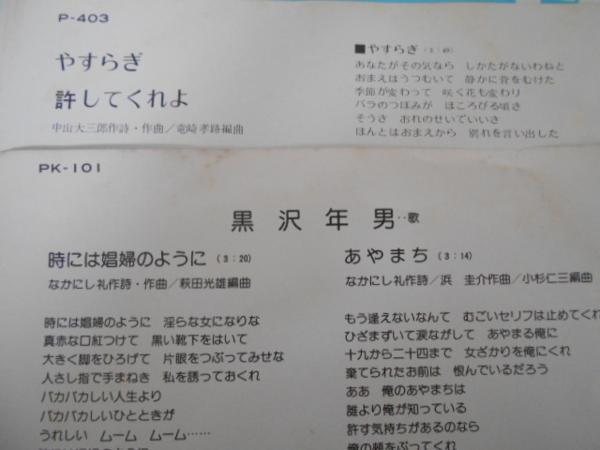 P-403
やすらぎ
許してくれよ
中山大三郎作詩・作曲／竜崎孝路編曲
■やすらぎ（3：49）
あなたがその気なら　しかたがないわねと
おまえはうつむいて　静かに背をむけた
季節が変わって　咲く花も変わり
バラのつぼみが　ほころびる頃さ
そうさ　おれのせいでいいさ
ほんとはおまえから　別れを言い出した
PK-101
黒沢年男‥歌
時には娼婦のように（3：20）
なかにし礼作詩・作曲／萩田光雄編曲
時には娼婦のように　淫らな女になりな
真赤な口紅つけて　黒い靴下をはいて
大きく脚をひろげて　片眼をつぶってみせな
人さし指で手まねき　私を誘っておくれ
バカバカしい人生より
バカバカしいひとときが
うれしい　ムーム　ムーム……
あやまち（3：14）
なかにし礼作詩／浜　圭介作曲／小杉仁三編曲
もう逢えないなんて　むごいセリフは止めてくれ
ひざまずいて涙ながして　あやまる俺に
十九から二十四まで　女ざかりを俺にくれ
棄てられたお前は　恨んでいるだろう
ああ　俺のあやまちは
誰より俺が知っている
許す気持ちがあるのなら
俺の頬をぶってくれ